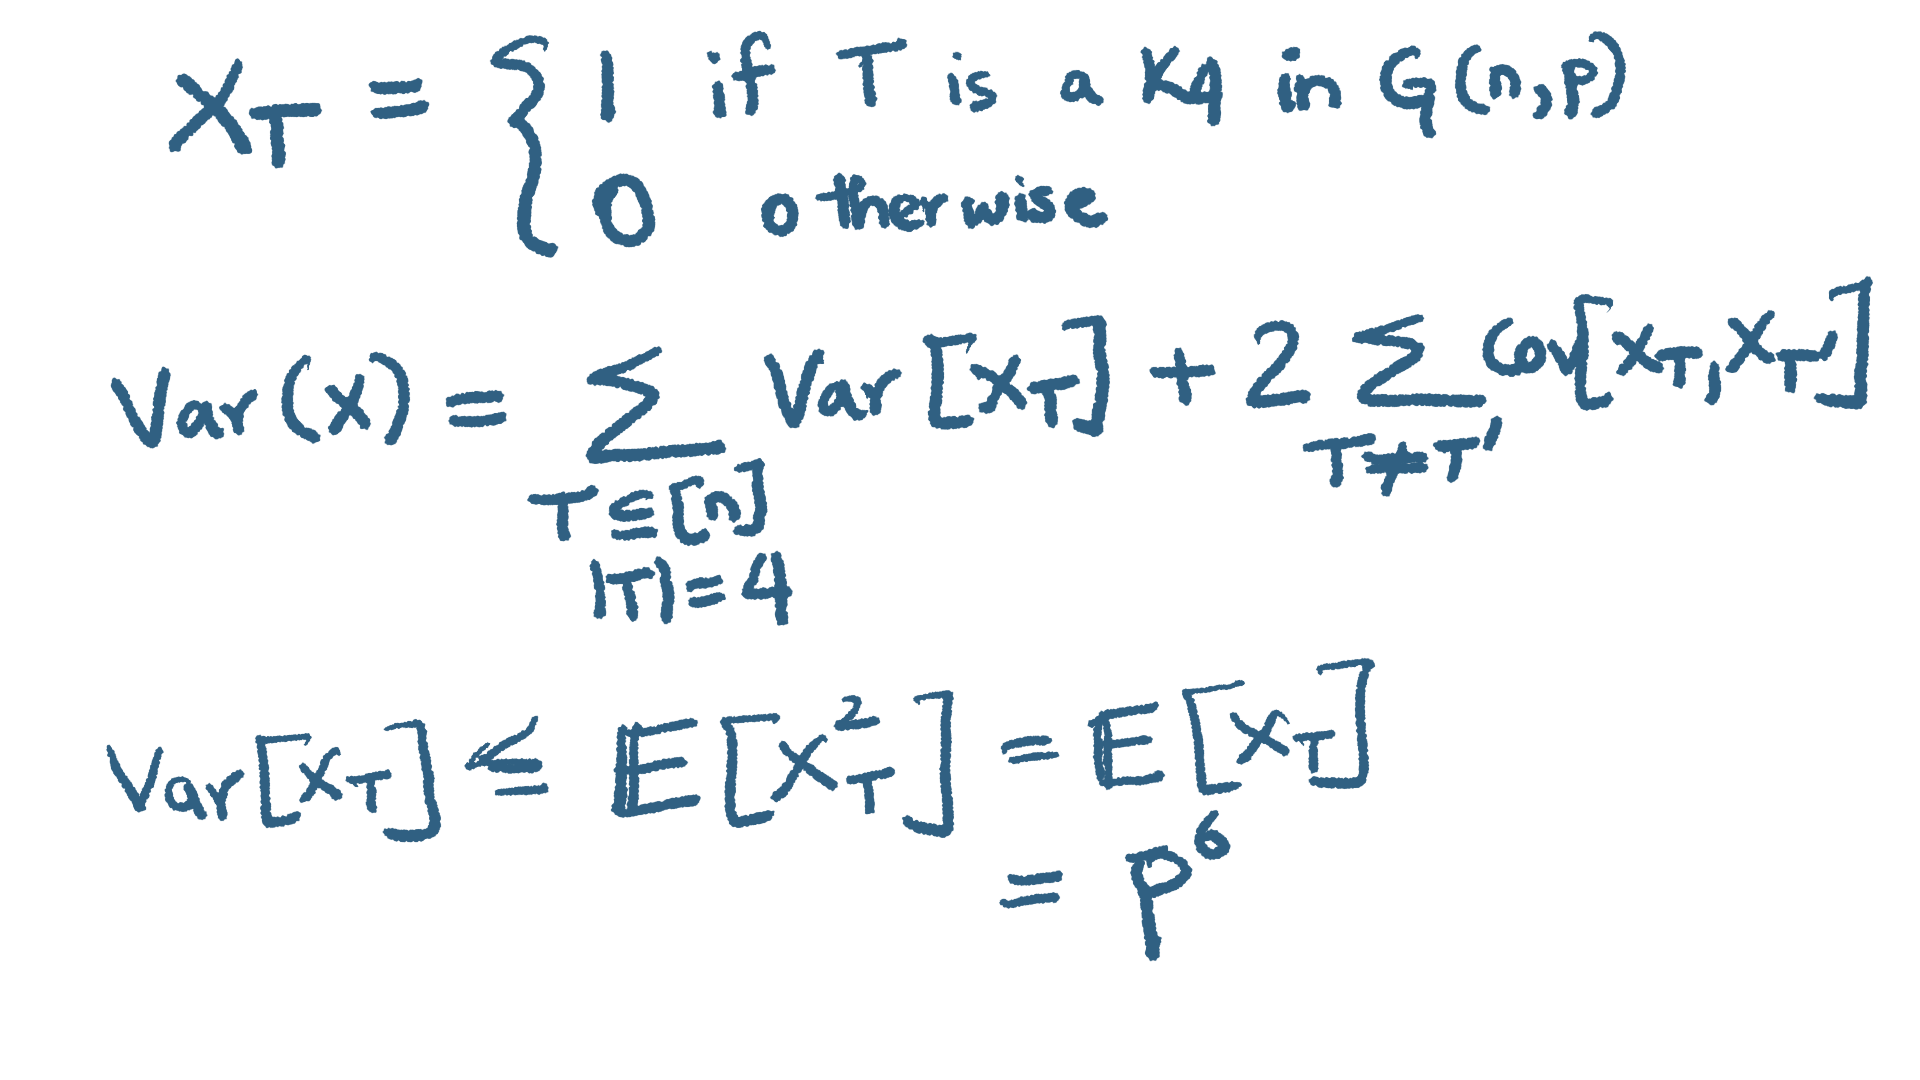 X_T = { 1 if T is a K4 in G(n,p)
0 otherwise
Var(X) = ∑ Var[X_T] + 2 ∑ Cov[X_T, X_T']
T ⊆ [n] T ≠ T'
|T| = 4
Var[X_T] ≤ E[X_T^2] = E[X_T]
= p^6